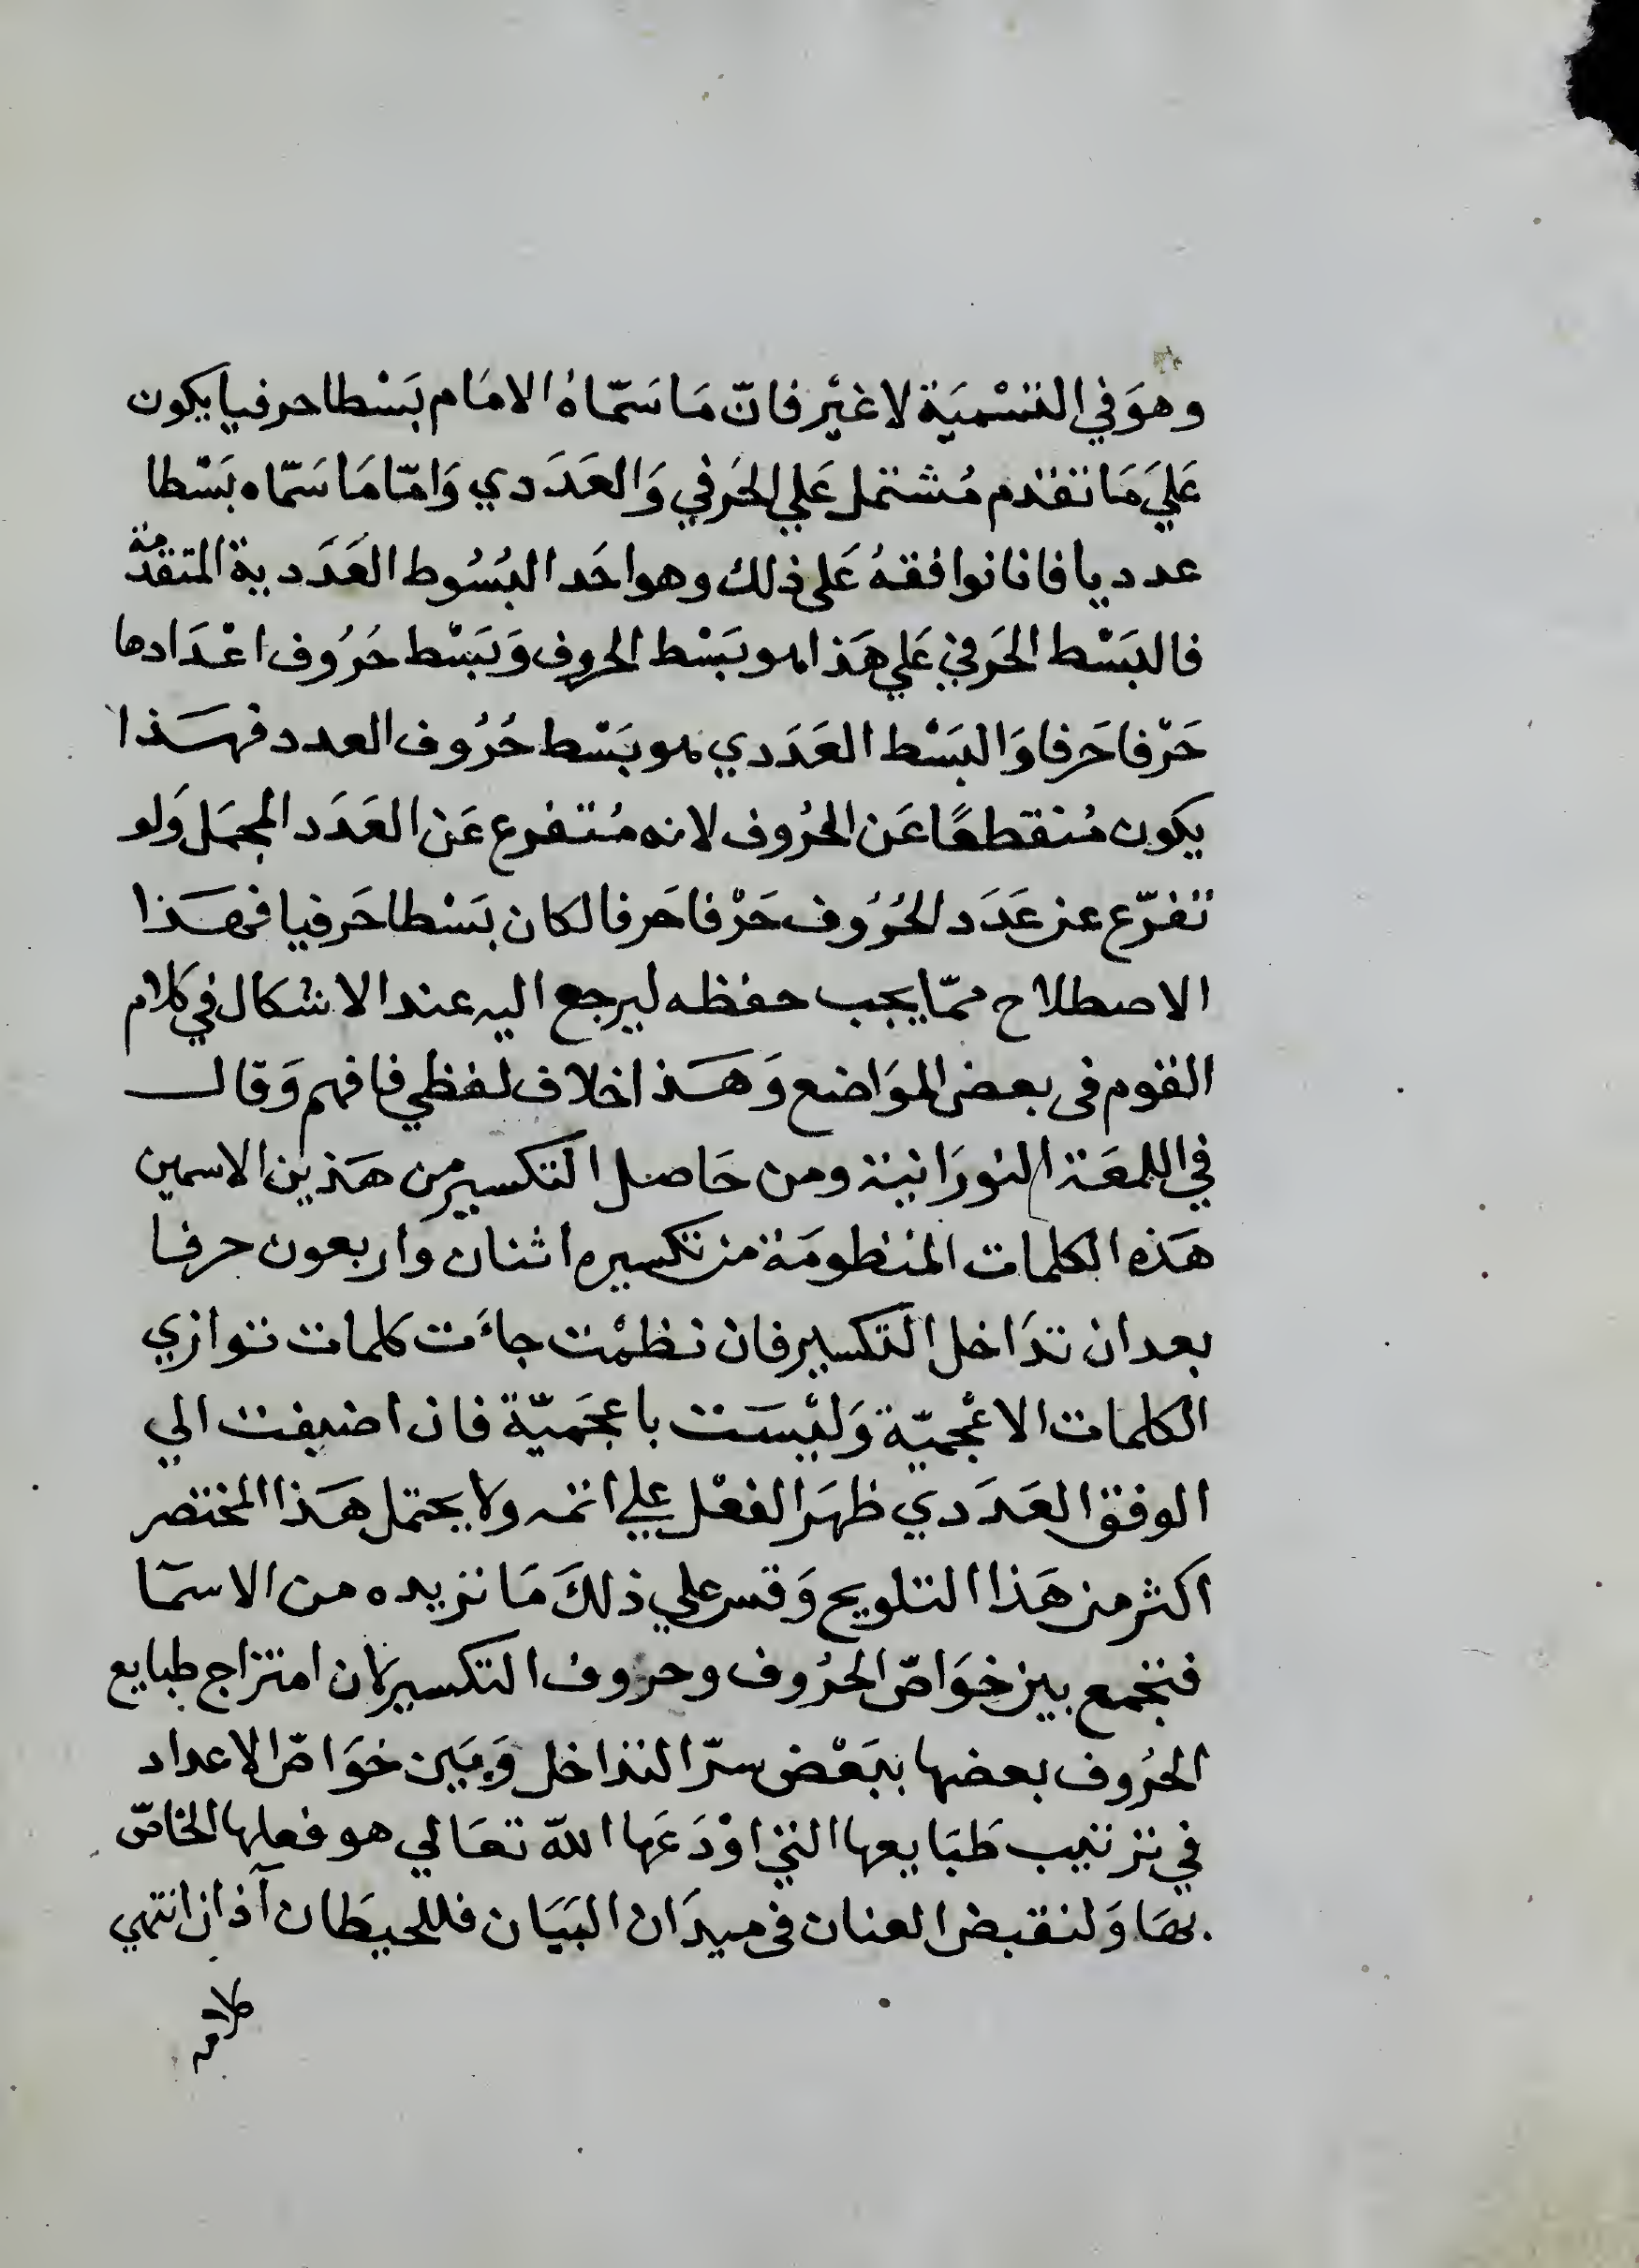 وهوَ في التسْميَة لا غيْر فانّ مَا سَمّاهُ الامَام بَسْطا حرفيا يكون
عَليَ مَا تقدم مُشتمل عَلي الحَرفي وَالعَدَدي وَامّا مَا سَمّاه بَسْطا
عدديا فانا نوافقهُ عَلى ذلك وهو احَد البُسُوط العَدَدية المتقدّمة
فالبَسْط الحَرفي عَلي هَذا هو بَسْط الحروف وَبَسْط حُرُوف اعْدَادها
حَرْفا حَرفا وَالبَسْط العَدَدي هو بَسْط حُرُوف العدد فهَذا
يكون مُنقطعًا عَن الحُروف لانه مُتفرع عَن العَدَد المجمَل وَلو
تفرّع عن عَدَد الحُرُوف حَرْفا حَرفا لكان بَسْطا حَرفيا فهَذا
الاصطلاح ممّا يجب حفظه ليرجع اليه عند الاشكال في كلام
القوم فى بعض الموَاضع وَهَذا خلاف لفظي فافهم وَقال
في اللمعَة النورَانية ومن حَاصل التكسير من هَذين الاسمين
هَذه الكلمات المنظومَة من تكسيره اثنان واربعون حرفا
بعد ان تدَاخل التكسير فان نظمْت جاءَت كلمات توازي
الكلمات الاعْجميّة وَليْسَت باعجَميّة فان اضيفت الي
الوفق العَدَدي ظهَر الفعْل علي اتمه ولا يحتمل هَذا المختصر
اكثر من هَذا التلويح وَقس علي ذلكَ مَا تريده من الاسمآ
فتجمع بين خوَاصّ الحُروف وحروف التكسير لان امتزاج طبايع
الحُروف بعضها ببَعْض سرّ التداخل وَبَين خوَاصّ الاعداد
في ترتيب طَبَايعها التي اوْدَعَها اللّه تعَالي هو فعلها الخاصّ
بهَا وَلنقبض العنان فى ميدَان البَيَان فللحيطَان آذان انتهي
كلامه